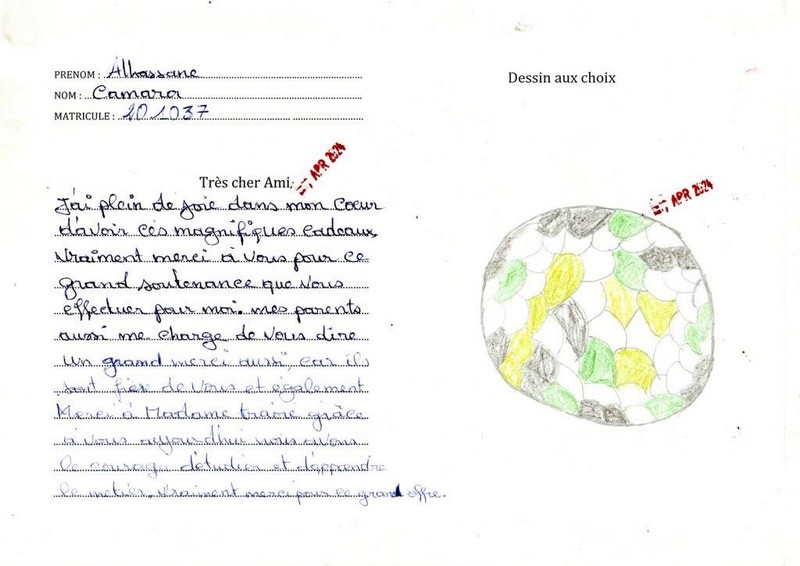 PRENOM : Alhassane
NOM : Camara
MATRICULE : 201037
Dessin aux choix
APR 2024
Très cher Ami,
J'ai plein de joie dans mon Coeur
d'avoir ces magnifiques Cadeaux
Vraiment merci à Vous pour ce
grand soutenance que Vous
effectuer pour moi. mes parents
aussi me charge de Vous dire
un grand merci aussi, car ils
sont fier de Vous et également
Merci à Madame traire grâce
à vous aujourd'hui nous avons
le courage d'étudier et d'apprendre
le metier. Vraiment merci pour ce grand offre.
APR 2024